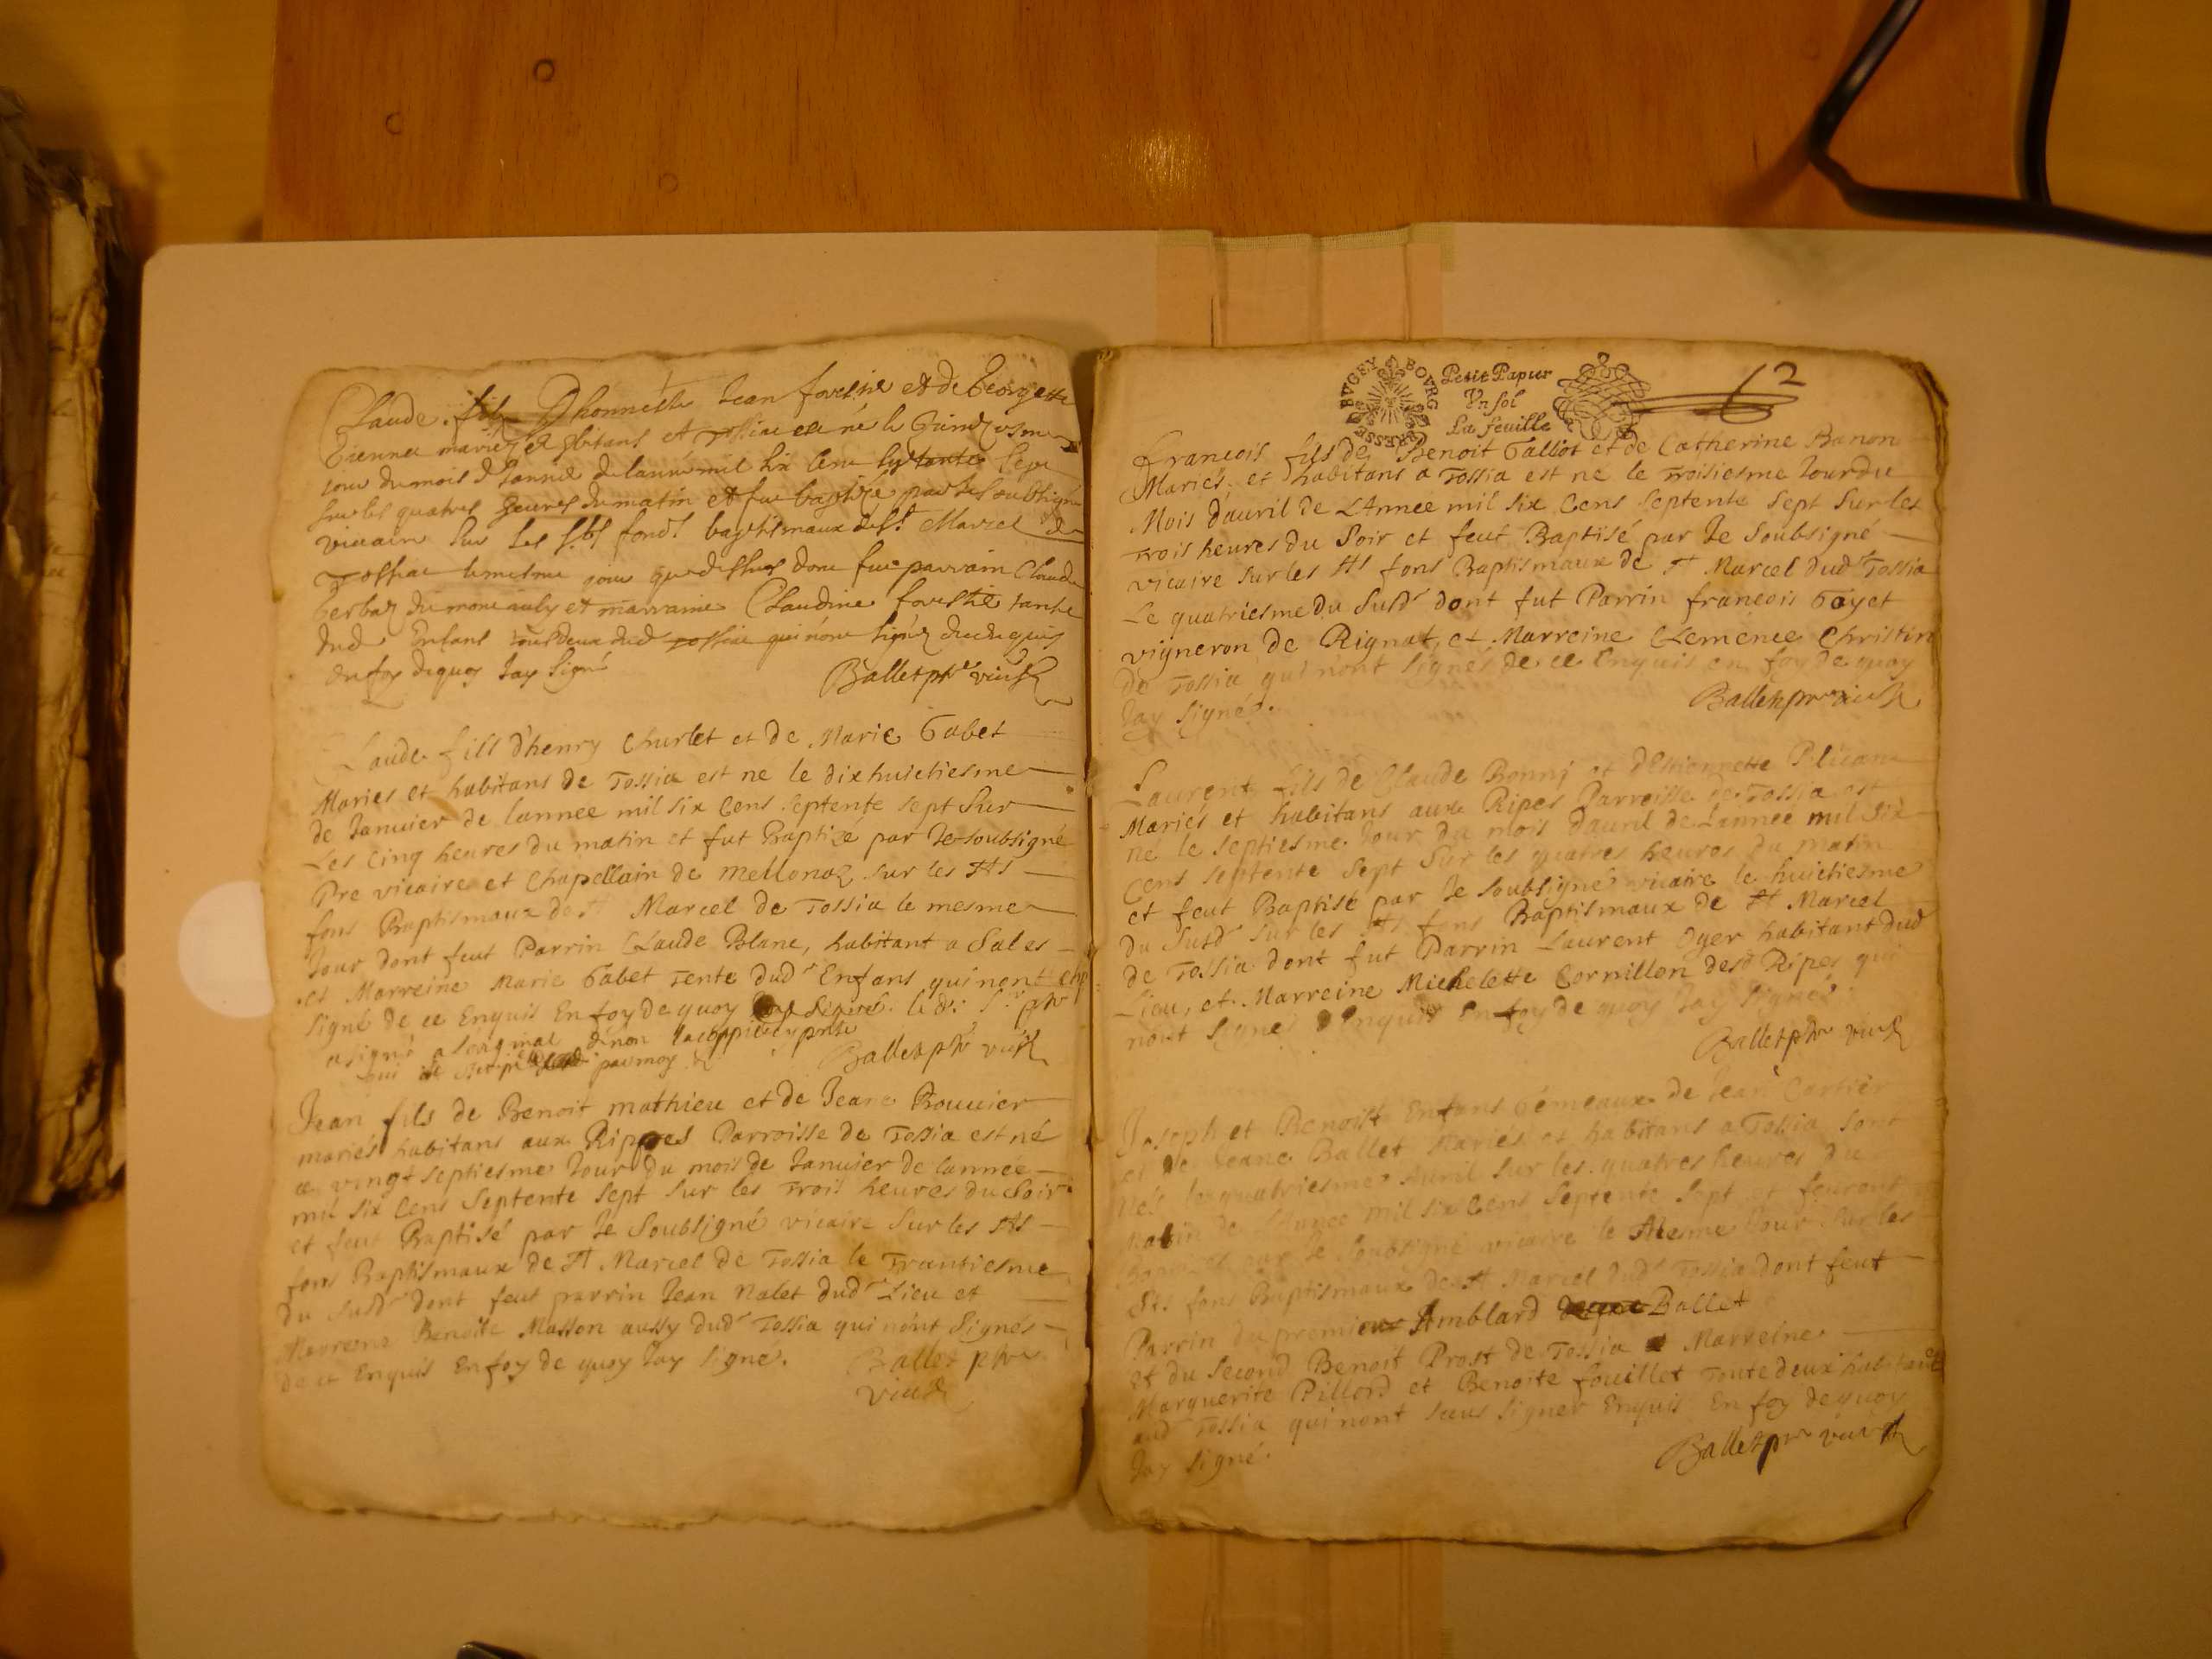 Claude fils Dhonneste Jean forestie et de Georgette
Vienne mariez et habitans et Tossiae né le
jour du mois de Janvier de lannée mil six cens septante sept
sur les quatres heures du matin et fut baptize par le soubsigné
vicaire sur les sts fonds baptismaux de st Marcel de
Tossiac le mesme jour que dessus dont fut parrain Claude
et marraine Claudine forestie tante
dud enfant tous deux dud Tossiac qui nont signéz de ce enquis
en foy dequoy Jay signé
Ballet ptre vic
Claude fils d'henry Churlet et de Marie Gabet
Mariés et habitans de Tossia est ne le dixhuictiesme
de Januier de lannee mil six cens septente sept sur
Les cinq heures du matin et fut Baptizé par Je soubsigné
Pre vicaire et Chapellain de Mellonaz sur les Sts
fons Baptismaux de St Marcel de Tossia le mesme
Jour dont feut Parrin Claude Blanc, habitant a Sales
et Marreine Marie Gabet tente dudt Enfans qui nont
signé de ce Enquis En foy de quoy
a signé a loriginal
par moy
Ballet ptre vic
Jean fils de Benoit mathieu et de Jeane Bouuier
mariés habitans aux Rippes Parroisse de Tossia est né
ce vingt septiesme Jour du mois de Januier de lannée
mil six cens septente sept sur les trois heures du Soir
et feut Baptisé par Je Soubsigné vicaire sur les Sts
fons Baptismaux de St Marcel de Tossia le Trantiesme
du susdt dont feut parrin Jean Nalet dudt Lieu et
Marreine Benoite Masson aussy dudt Tossia qui nont Signés
de ce Enquis En foy de quoy Jay signé.
Ballet ptre
vic
BVGEY BOVRG BRESSE
Petit Papier
Vn sol
La feuille
62
francois fils de Benoit Talliot et de Catherine Banon
Mariés et habitans a Tossia est ne le troisiesme Jour du
Mois dauril de LAnnee mil six Cens septente sept sur les
trois heures du Soir et feut Baptisé par Je Soubsigné
vicaire sur les Sts fons Baptismaux de St Marcel dudt Tossia
Le quatriesme du susdt dont fut Parrin francois Goyet
vigneron de Rignat, et Marreine Clemence Christin
de Tossia qui nont signés de ce Enquis en foy de quoy
Jay signé.
Ballet ptre vic
Laurent fils de Claude Bonnj et dEstionnette
Mariés et habitans aux Ripes Parroisse de Tossia est
né le septiesme Jour du mois dauril de Lannee mil six
Cens septente sept sur les quatres heures du matin
et feut Baptisé par Je soubsigné vicaire le huictiesme
du susdt sur les Sts fons Baptismaux de St Marcel
de Tossia dont fut Parrin Laurent Oyer habitant dud
Lieu, et Marreine Michelette Cornillon desd Ripes qui
nont signé Enquis En foy de quoy Jay signé.
Ballet ptre vic
Joseph et Benoist Enfans Gémeaux de Jean Cartier
et de Jeane Ballet Mariés et habitans a Tossia sont
Nes le quatriesme Auril sur les quatres heures du
Matin de LAnnee mil six Cens septente sept et feuront
Baptises par Je Soubsigné vicaire le Mesme Jour sur les
Sts fons Baptismaux de St Marcel dudt Tossia dont feut
Parrin du premier Amblard Ballet
et du second Benoit Prost de Tossia Marreine
Marguerite Pillord et Benoite fouillet toute deux habitant
aud Tossia qui nont sceus signer Enquis En foy de quoy
Jay signé.
Ballet ptre vic